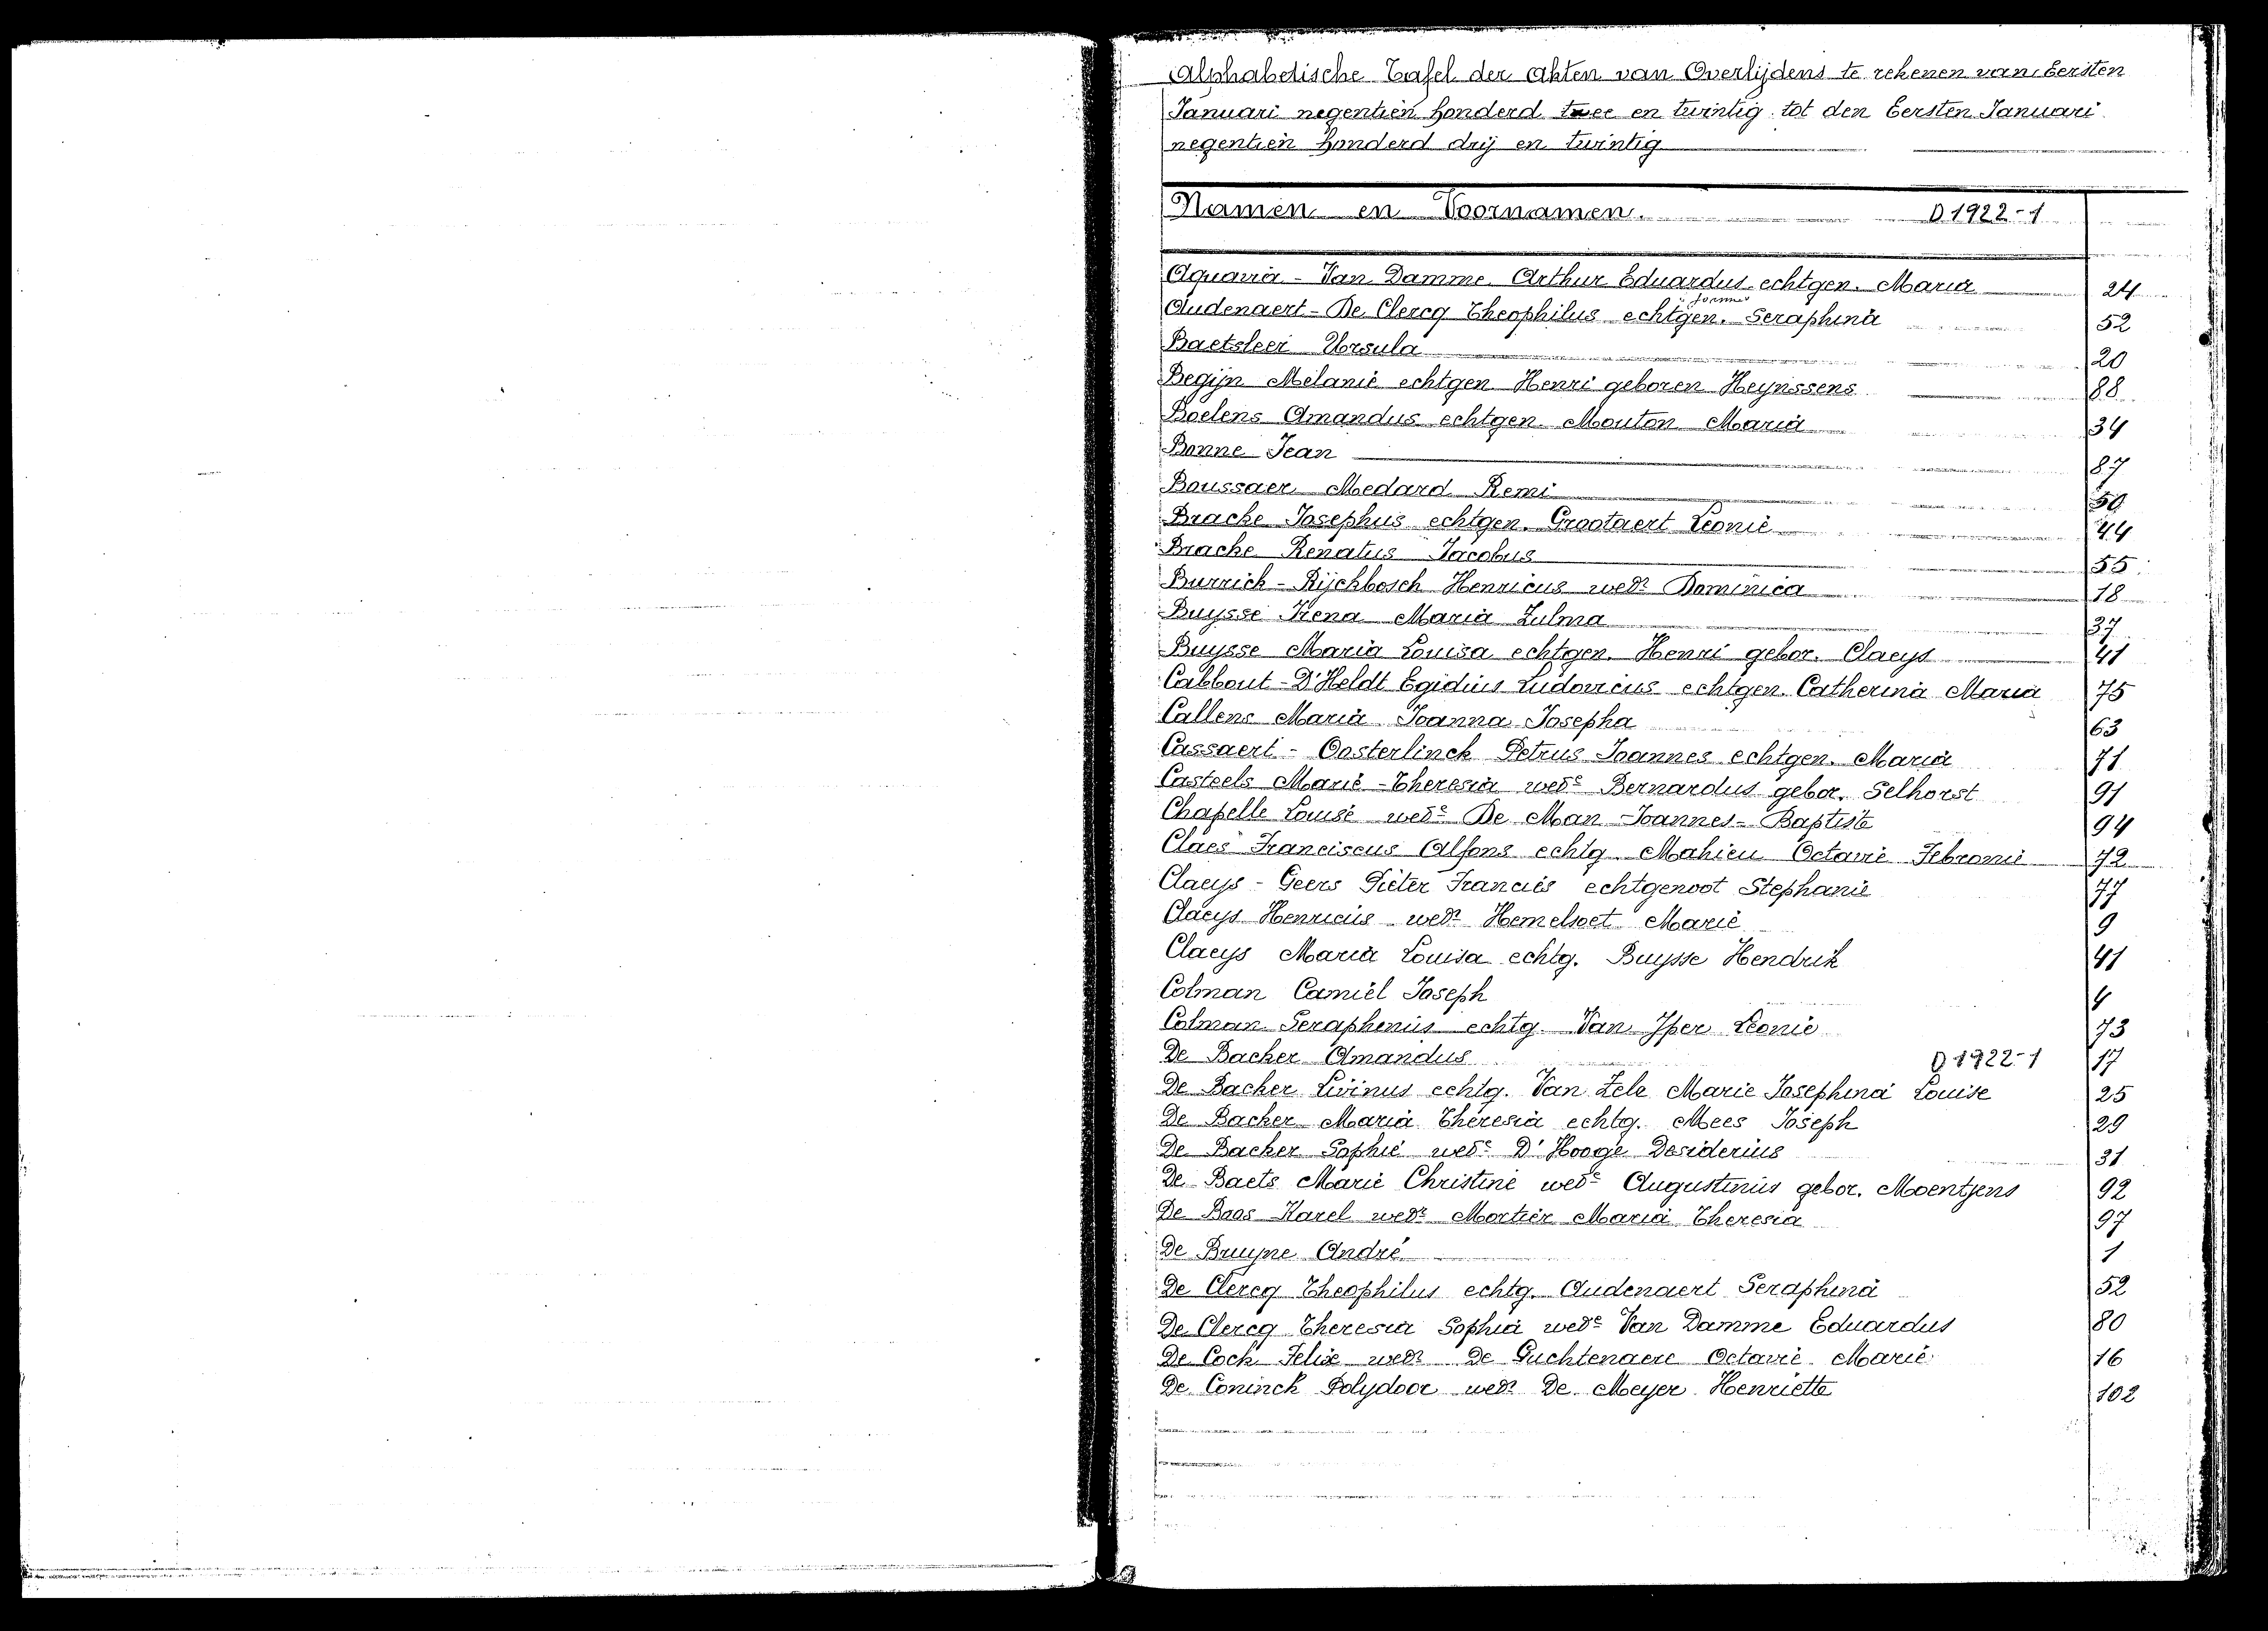 Alphabetische Tafel der Akten van Overlijdens te rekenen van Eersten
Januari negentien honderd twee en twintig tot den Eersten Januari
negentien honderd drij en twintig
Namen en Voornamen. D 1922-1
Aquaria - Van Damme Arthur Eduardus echtgen. Maria 24
Audenaert - De Clercq Theophilus echtgen. Seraphina 52
Baetsleer Ursula 20
Begijn Melanie echtgen Henri geboren Heynssens 88
Boelens Amandus echtgen. Mouton Maria 34
Bonne Jean 87
Boussaer Medard Remi 50
Bracke Josephus echtgen. Grootaert Leonie 44
Bracke Renatus Jacobus 55
Burrich - Rijckbosch Henricus wedr Dominica 18
Buysse Irena Maria Zulma 37
Buysse Maria Louisa echtgen. Henri gebor. Claeys 41
Cabbout - D'Heldt Egidius Ludovicus echtgen. Catherina Maria 75
Callens Maria Joanna Josepha 63
Cassaert - Oosterlinck Petrus Joannes echtgen. Maria 71
Casteels Marie - Theresia wede Bernardus gebor. Selhorst 91
Chapelle Louise wede De Man Joannes - Baptiste 94
Claes Franciscus Alfons echtg. Mahieu Octavie Febronie 72
Claeys - Geers Pieter Francies echtgenoot Stephanie 77
Claeys Henricus wedr Hemelsoet Marie 9
Claeys Maria Louisa echtg. Buysse Hendrik 41
Colman Camiel Joseph 4
Colman Seraphenus echtg. Van Yper Leonie 73
De Backer Amandus D 1922-1 17
De Backer Livinus echtg. Van Zele Marie Josephina Louise 25
De Backer Maria Theresia echtg. Mees Joseph 29
De Backer Sophie wede D'Hooge Desiderius 31
De Baets Marie Christine wede Augustinus gebor. Moentjens 92
De Baas Karel wedr Mortier Maria Theresia 97
De Bruyne André 1
De Clercq Theophilus echtg. Audenaert Seraphina 52
De Clercq Theresia Sophia wede Van Damme Eduardus 80
De Cock Felix wedr De Guchtenaere Octavie Marie 16
De Coninck Polydoor wedr De Meyer Henriette 102